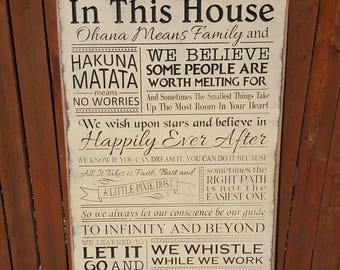 In This House
Ohana Means Family and
HAKUNA
MATATA
means
NO WORRIES
WE BELIEVE
SOME PEOPLE ARE
WORTH MELTING FOR
And Sometimes The Smallest Things Take
Up The Most Room in Your Heart
We wish upon stars and believe in
Happily Ever After
WE KNOW IF YOU CAN DREAM IT, YOU CAN DO IT BECAUSE
All It Takes is Faith, Trust and
A LITTLE PIXIE DUST
sometimes the
RIGHT PATH
is not the
EASIEST ONE
So we always let our conscience be our guide
TO INFINITY AND BEYOND
WE LEARNED TO
LET IT
GO AND
WE WHISTLE
WHILE WE WORK